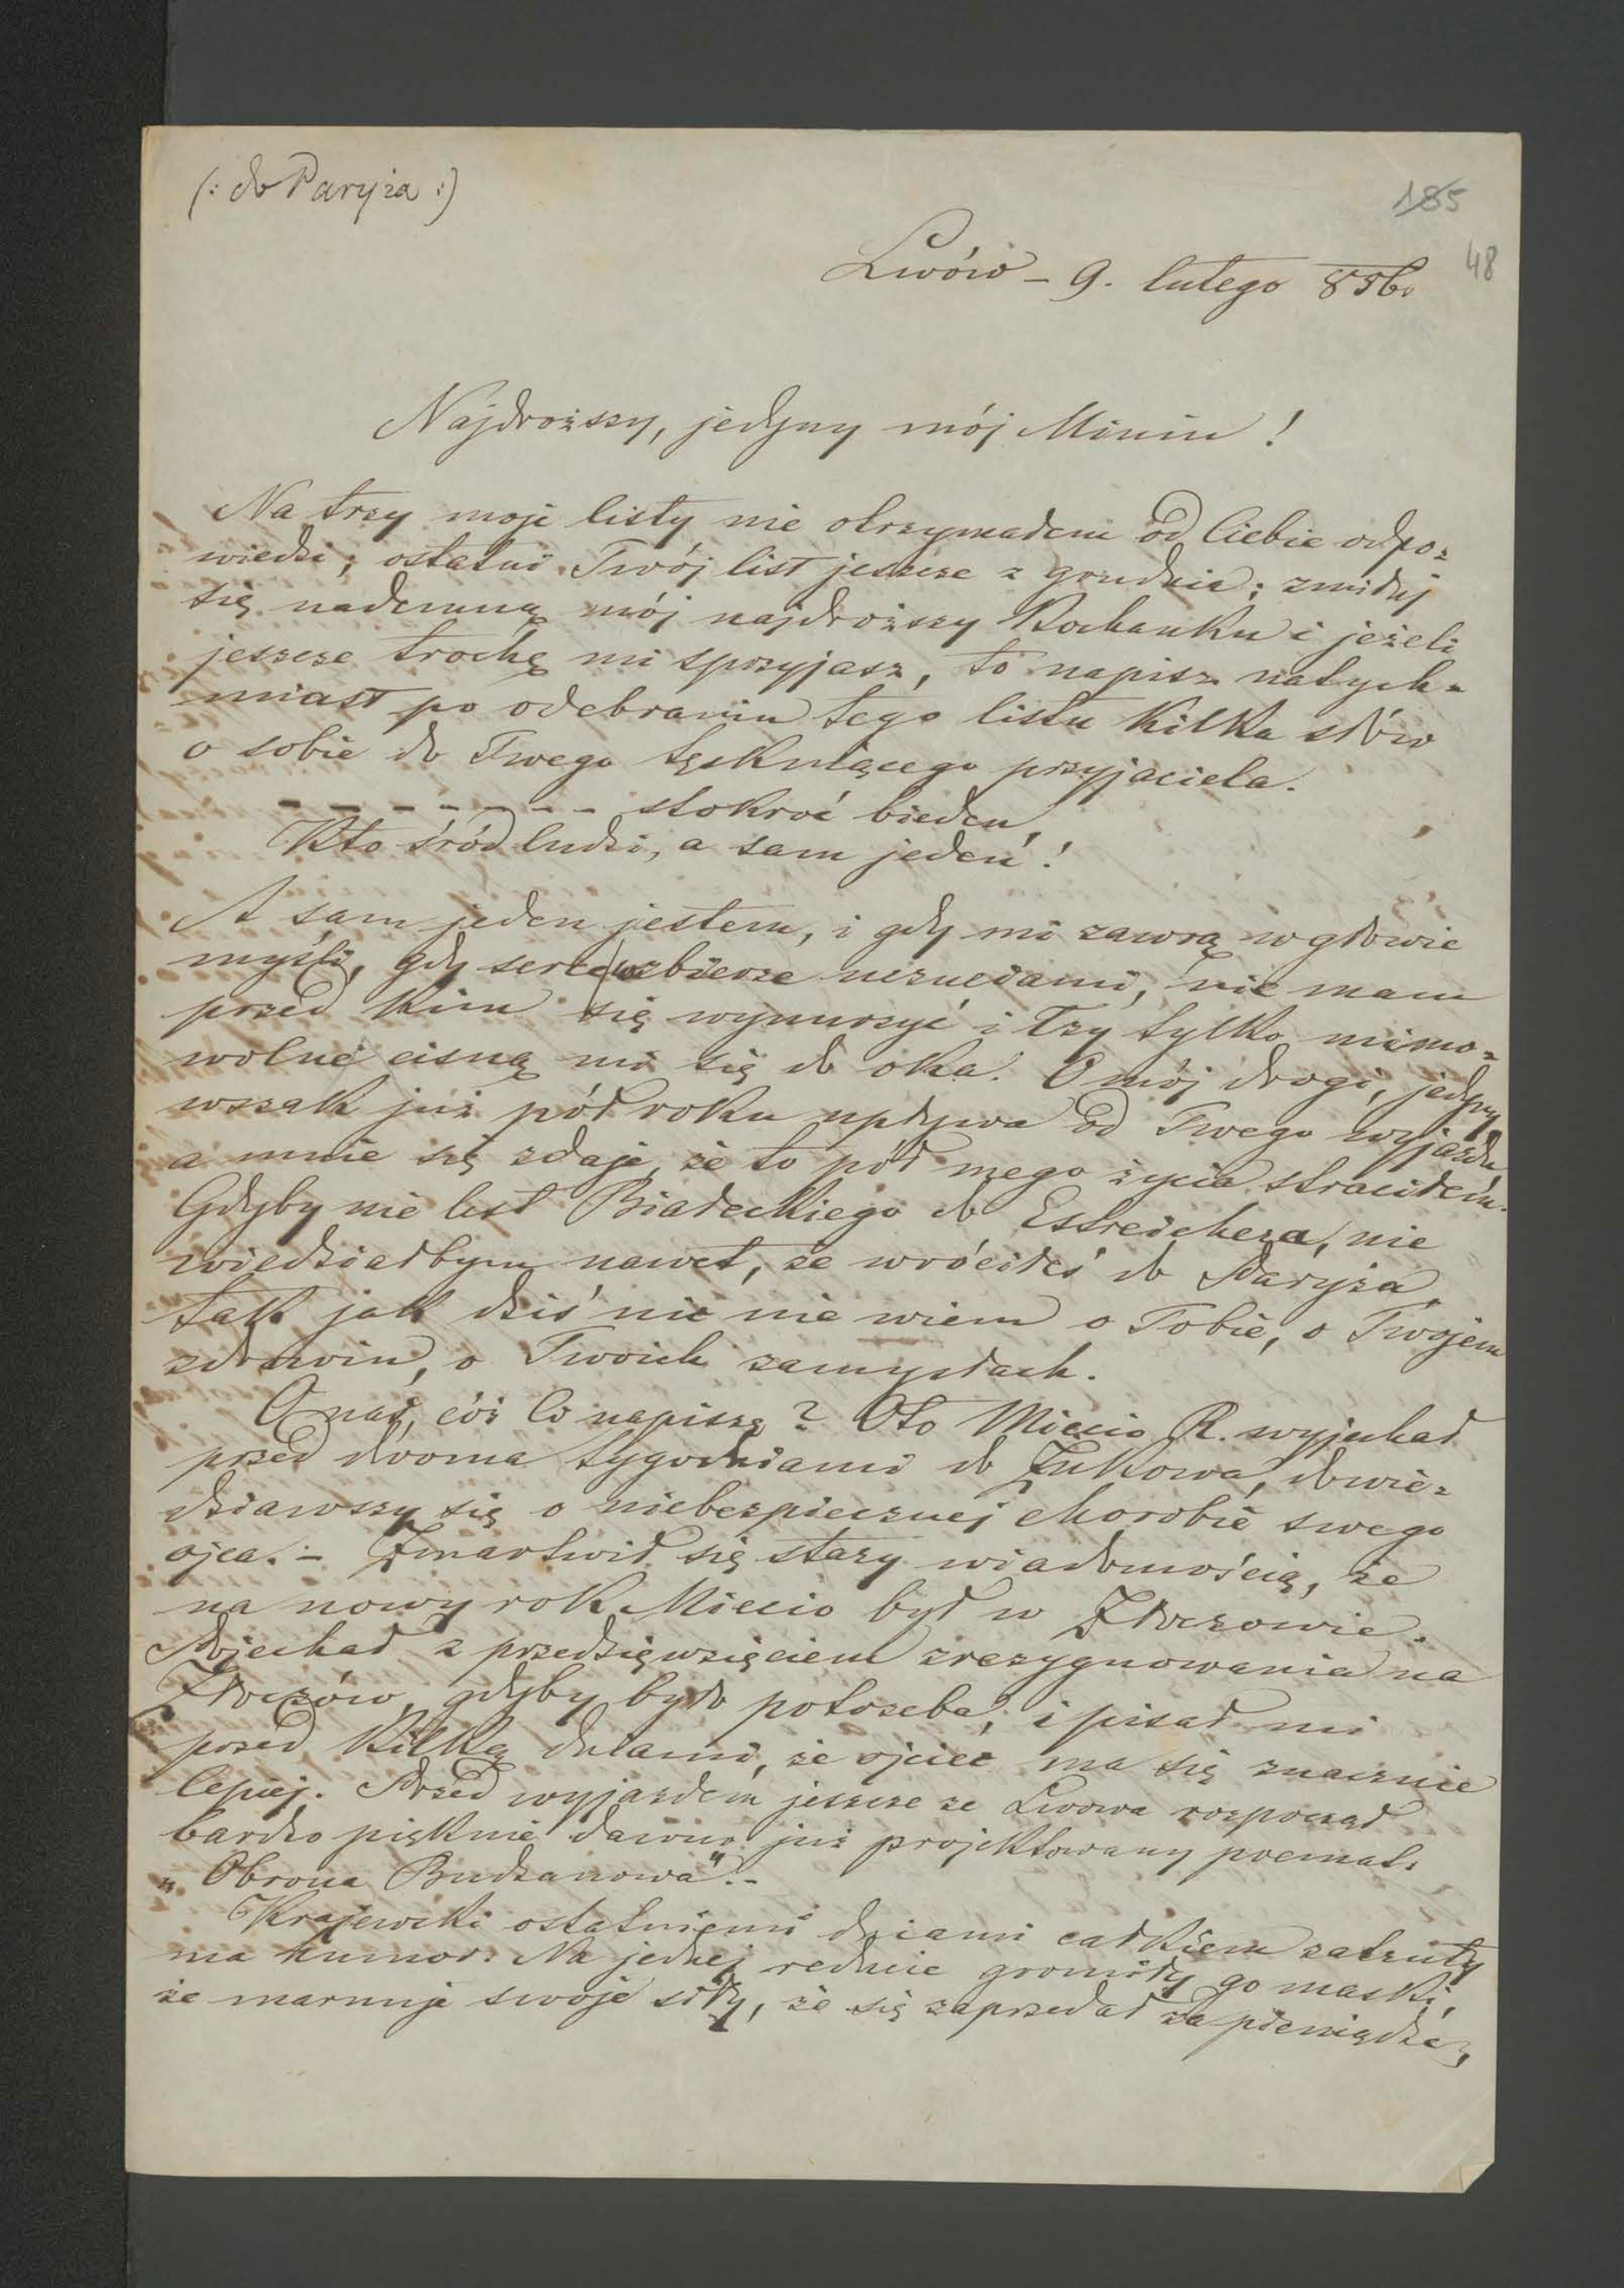 (: do Paryża :)
185
48
Lwów – 9. lutego 856.
Najdroższy, jedyny mój Miniu !
Na trzy moje listy nie otrzymałem od Ciebie odpo=
wiedzi; ostatni Twój list jeszcze z grudnia; zmiłuj
się nademną mój najdroższy Kochanku i jeżeli
jeszcze trochę mi sprzyjasz, to napisz natych=
miast po odebraniu tego listu kilka słów
o sobie do Twego tęskniącego przyjaciela.
– – – – – – – – stokroć bieden,
Kto śród ludzi, a sam jeden !
A sam jeden jestem, i gdy mi zawrą w głowie
myśli, gdy serce wzbierze uczuciami, nie mam
przed kim się wynurzyć i łzy tylko mimo=
wolne cisną mi się do oka. O mój drogi, jedyny
wszak już pół roku upływa od Twego wyjazdu
a mnie się zdaje, że to pół mego życia straciłem.
Gdyby nie list Białeckiego do Estreichera, nie
wiedziałbym nawet, że wróciłeś do Paryża,
tak jak dziś nic nie wiem o Tobie, o Twojem
zdrowiu, o Twoich zamysłach.
O nas, cóż Ci napiszę ? Oto Miecio R. wyjechał
przed dwoma tygodniami do Żukowa, dowie=
dziawszy się o niebezpiecznej chorobie swego
ojca. – Zmartwił się stary wiadomością, że
na nowy rok Miecio był w Złoczowie.
Pojechał z przedsięwzięciem zrezygnowania na
Złoczów, gdyby było potrzeba, i pisał mi
przed kilką dniami, że ojciec ma się znacznie
lepiej. Przed wyjazdem jeszcze ze Lwowa rozpoczął
bardzo pięknie dawno już projektowany poemat:
„Obrona Budzanowa". –
Krajewski ostatniemi dniami całkiem zatruty
ma humor. Na jednej reducie gromiły go maski,
że marnuje swoje siły, że się zaprzedał za pieniądze,